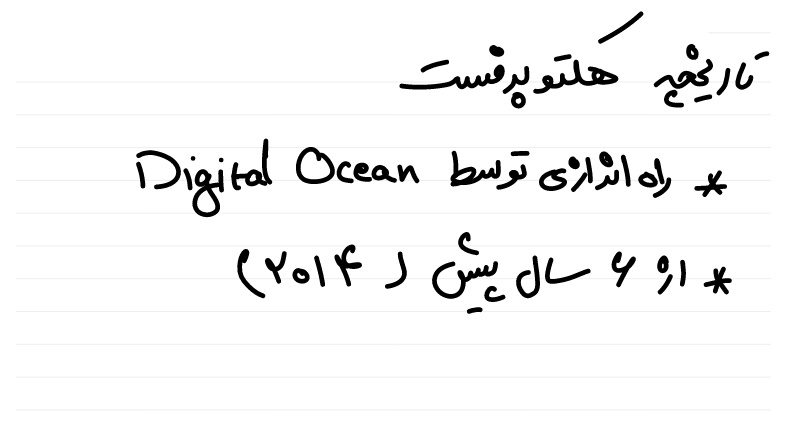 تاریخچه هکتوبرفست
* راه اندازی توسط Digital Ocean
* از ۶ سال پیش (۲۰۱۴)